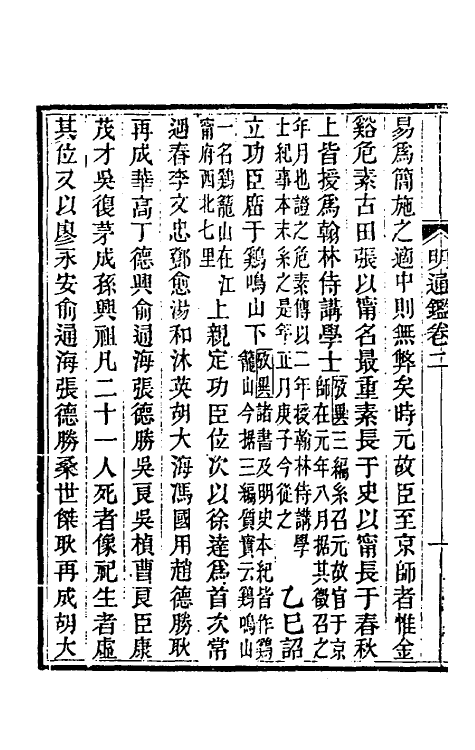 明通鑑卷二
易爲簡施之適中則無弊矣時元故臣至京師者惟金
谿危素古田張以甯名最重素長于史以甯長于春秋
上皆授爲翰林侍講學士
攷異三編系召元故官于京
師在元年八月據其徵召之
年月也證之危素傳以二年授翰林侍講學
士紀事本末系之是年正月庚子今從之
乙巳詔
立功臣廟于鷄鳴山下
攷異諸書及明史本紀皆作鷄
籠山今據三編質實云鷄鳴山
一名鷄籠山在江
甯府西北七里
上親定功臣位次以徐達爲首次常
遇春李文忠鄧愈湯和沐英胡大海馮國用趙德勝耿
再成華高丁德興俞通海張德勝吳良吳楨曹良臣康
茂才吳復茅成孫興祖凡二十一人死者像祀生者虛
其位又以廖永安俞通海張德勝桑世傑耿再成胡大